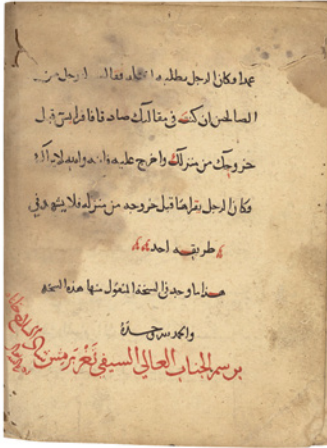 عمدا وكان الرجل يطلبه فقال له رجل من
الصالحين ان كنت في مقالتك صادقا فاقرا يس قبل
خروجك من منزلك واخرج عليه فانه والله لا يراك
وكان الرجل يقراها قبل خروجه من منزله فلا يشهد في
طريقه احد
هذا ما وجد في النسخة المنقول منها هذه النسخه
والحمد لله وحده
برسم الجناب العالي السيفي تغري برمش